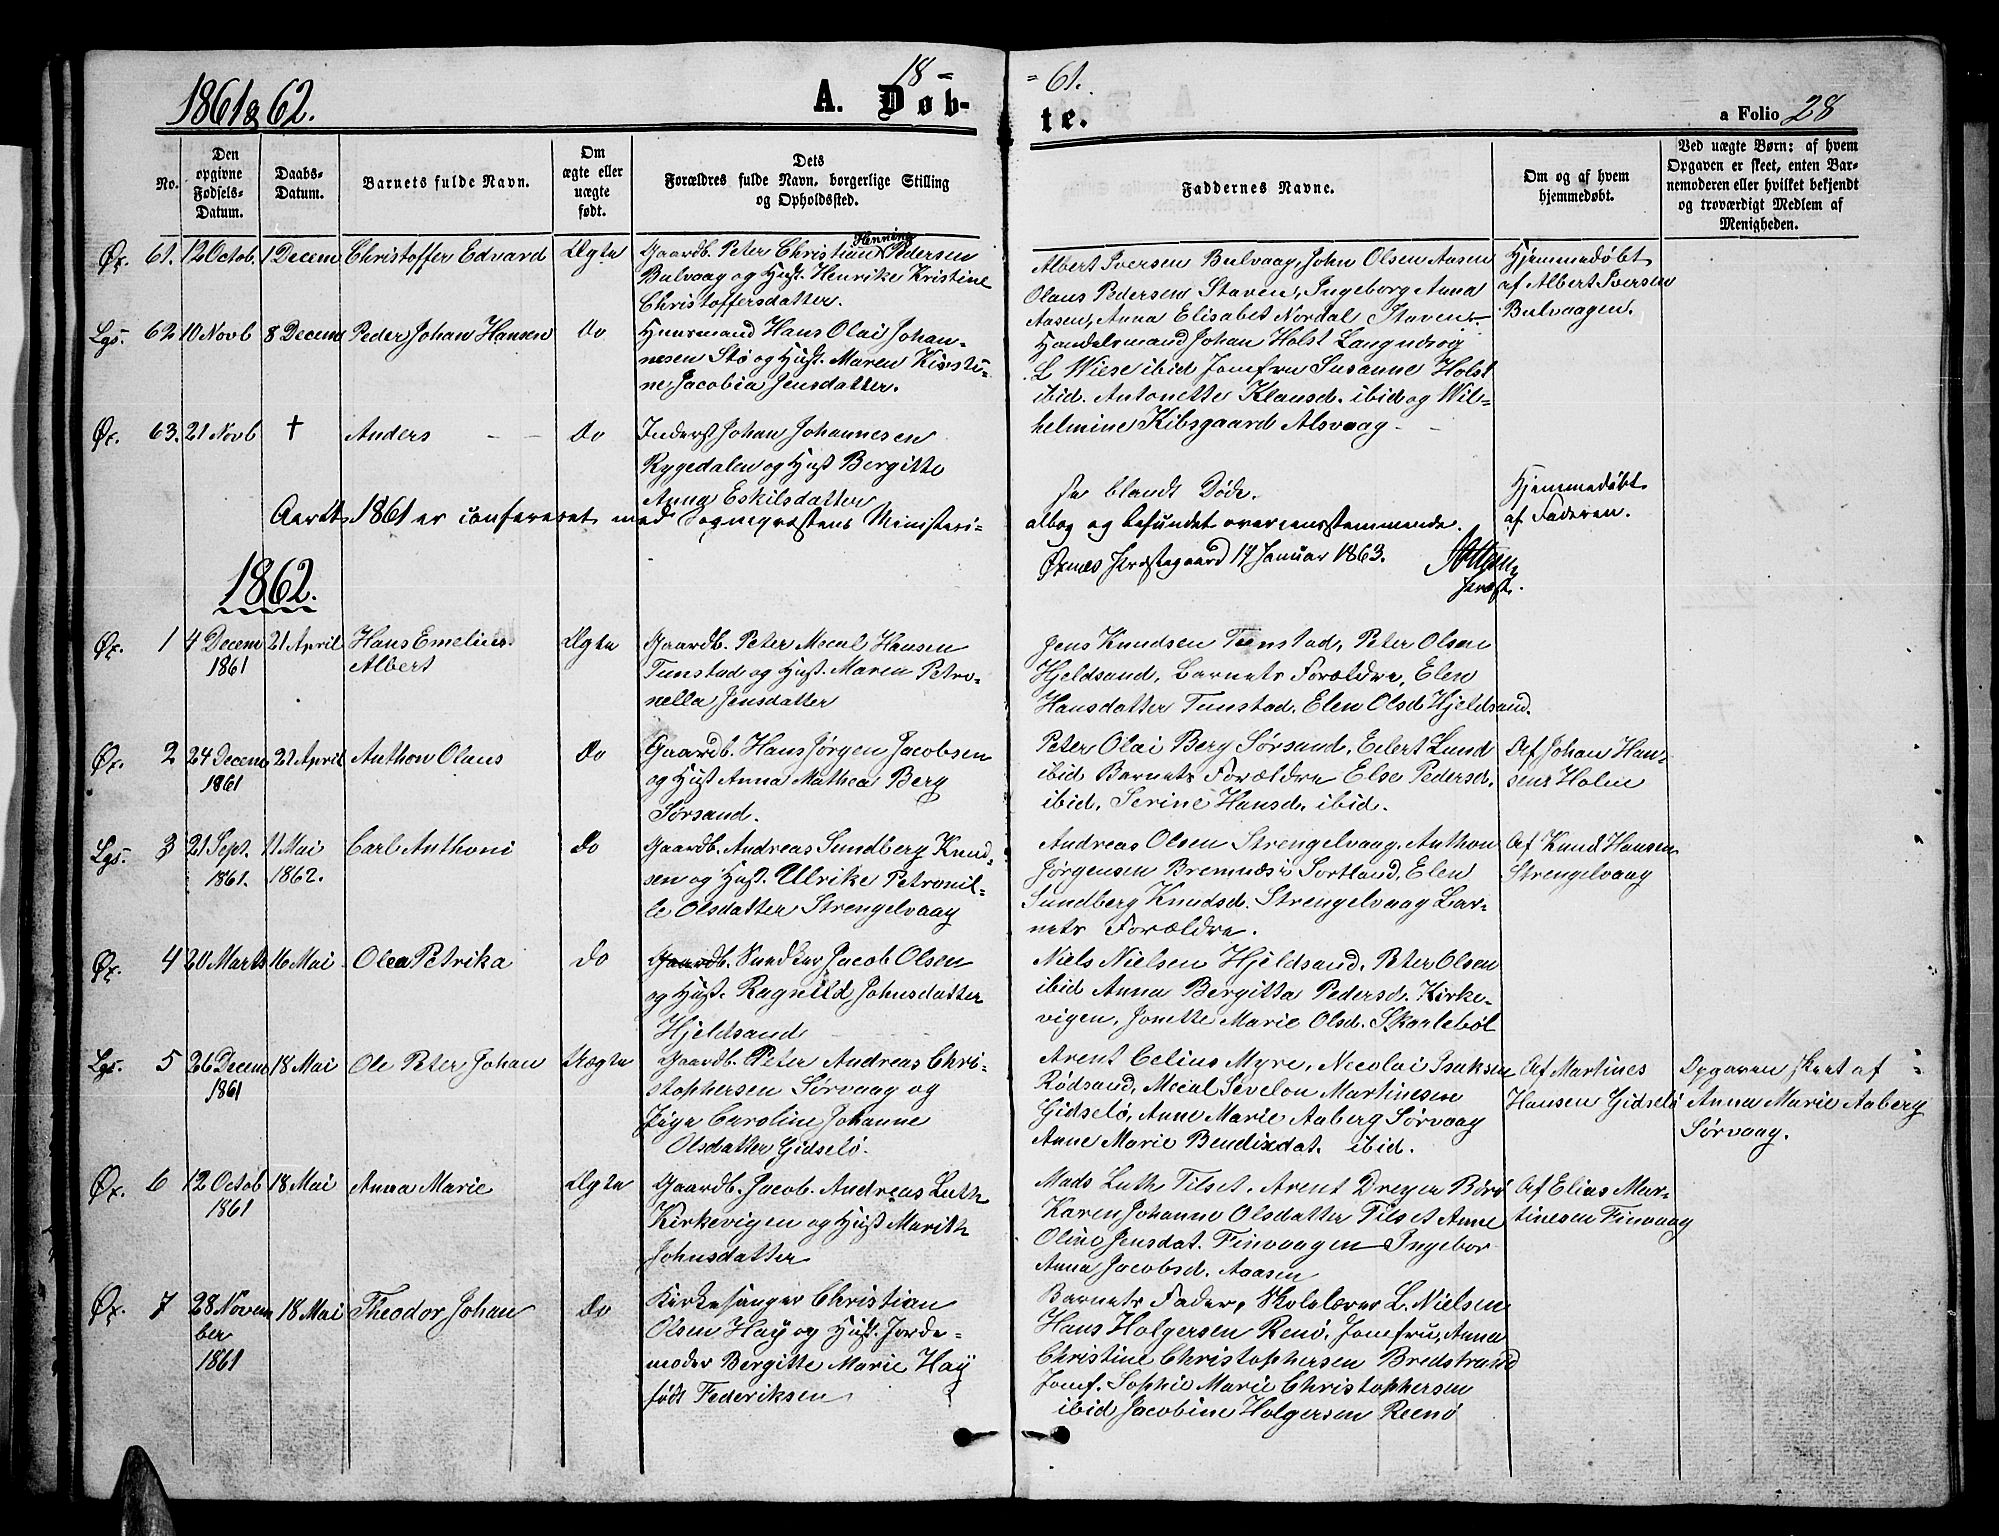 1861 & 62.
18 -
= 61.
A. Døb-
te.
a Folio 28
No.
Den opgivne Fødsels-Datum.
Daabs-Datum.
Barnets fulde Navn.
Om ægte eller uægte født.
Dets Forældres fulde Navn, borgerlige Stilling og Opholdssted.
Faddernes Navne.
Om og af hvem hjemmedøbt.
Ved uægte Børn: af hvem Opgaven er skeet, enten Barnemoderen eller hvilket bekjendt og troværdigt Medlem af Menigheden.
Øx. 61. 12 Octob. 1 Decem Christoffer Edvard Ægte
Gaardb. Peter Christian Henning Pedersen
Bulvaag og Hust. Henrike Kristine
Christoffersdatter.
Albert Iversen Bulvaag, John Olsen Aasen
Olaus Pedersen Staven, Ingeborg Anna
Aasen, Anna Elisabet Nordal Staven.
Hjemmedøbt
af Albert Iversen
Bulvaagen.
Lgs. 62 10 Novb 8 Decem Peder Johan Hansen do
Huusmand Hans Olai Johan-
nesen Stø og Hust. Maren Kirsti-
ne Jacobia Jensdatter.
Handelsmand Johan Holst Langnæs
L Wiese ibid Jomfru Susanne Holst
ibid. Antonette Klausd. ibid og Wil-
helmine Kibsgaard Alsvaag -
Øx. 63. 21 Novb † Anders - - do
Inderst Johan Johannesen
Rygedalen og Hust Bergitte
Anna Eskilsdatter
se blandt Døde.
Hjemmedøbt
af Faderen.
Aaret 1861 er confereret med Sognepræstens Ministeri-
albog og befundet overeensstemmende.
Øxnes Præstegaard 17 Januar 1863.
Præst.
1862.
Øx. 1 4 Decem 1861 21 April Hans Emelius
Albert Ægte
Gaardb. Peter Mecal Hansen
Tunstad og Hust. Maren Petro-
nella Jensdatter
Jens Knudsen Tunstad, Peter Olsen
Hjeldsand, Barnets Forældre, Elen
Hansdatter Tunstad. Elen Olsd Hjeldsand.
Øx. 2 24 Decem 1861 21 April Anthon Olaus do
Gaardb. Hans Jørgen Jacobsen
og Hust Anna Mathea Berg
Sørsand.
Peter Olai Berg Sørsand, Eilert Lund
ibid Barnets Forældre Else Pedersd.
ibid, Serine Hansd. ibid.
Af Johan Han-
sens Holm
Lgs. 3 21 Sept. 1861. 11 Mai 1862. Carl Anthoni do
Gaardb. Andreas Sundberg Knud-
sen og Hust. Ulrike Petronil-
le Olsdatter Strengelvaag
Andreas Olsen Strengelvaag, Anthon
Jørgensen Bremnæs i Sortland, Elen
Sundberg Knudsd. Strengelvaag Bar-
nets Forældre.
Af Knud Hansen
Strengelvaag
Øx. 4 20 Marts 16 Mai Olea Petrika do
Gaardb. Snedker Jacob Olsen
og Hust. Ragnild Johnsdatter
Hjeldsand
Niels Nielsen Hjeldsand. Peter Olsen
ibid Anna Bergitta Pedersd. Kirke-
vigen, Jonette Marie Olsd. Skarlebøl
Lgs. 5 26 Decem 1861 18 Mai Ole Peter Johan Uægte
Gaardb. Peter Andreas Chri-
stophersen Sørvaag og
Pige Caroline Johanne
Olsdatter Gidselø.
Arent Celius Myre, Necolai Isaksen
Rødsand, Mecal Sevelon Martinesen
Gidselø, Anne Marie Aaberg Sørvaag
Anne Marie Bendixdat. ibid.
Af Martines
Hansen Gidselø
Opgaven skeet af
Anna Marie Aaberg
Sørvaag.
Øx. 6 12 Octob 1861 18 Mai Anna Marie Ægte
Gaardb. Jacob Andreas Luth
Kirkevigen og Hust Marith
Johnsdatter
Mads Luth Tilset. Arent Dreyer Børø
Karen Johanne Olsdatter Tilset Anne
Oline Jensdat. Finvaagen Ingebor
Anna Jacobsd. Aaasen
Af Elias Mar-
tinesen Finvaag
Øx. 7 28 Novem
ber
1861 18 Mai Theodor Johan do
Kirkesanger Christian
Olsen Hay og Hust. Jorde-
moder Bergitte Marie Haÿ
født Federiksen
Barnets Fader, Skolelærer L. Nielsen
Hans Holgersen Renø, Jomfru, Anna
Christine Christophersen Bredstrand
Jomf. Sophie Marie Christophersen
ibid Jacobine Holgersen Reenø